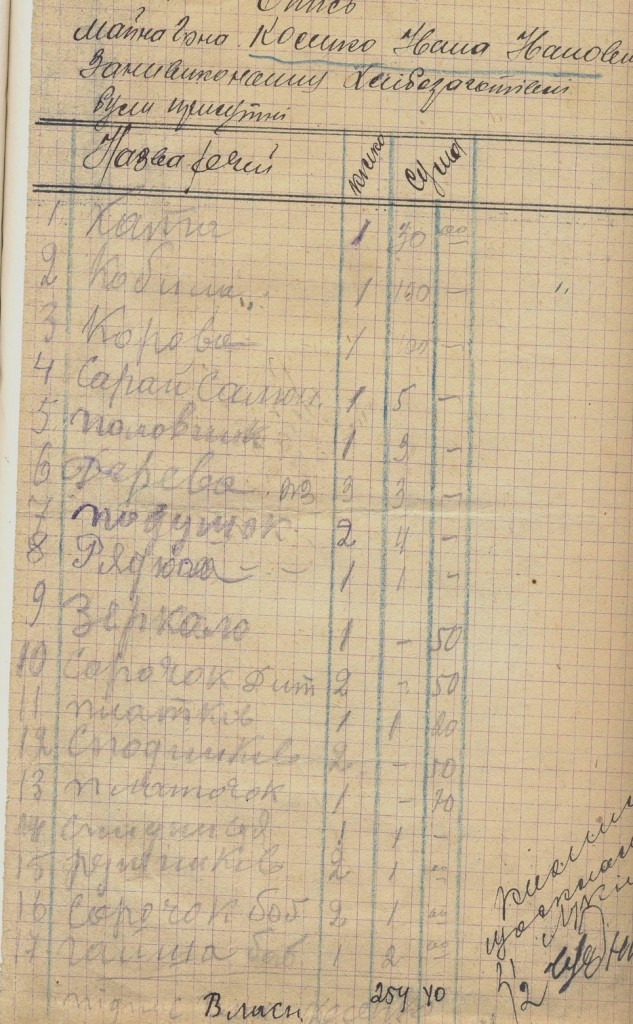 Опись
Майна Гр-на Косинко Йвана Йванови
За невиконання Хлібозаготівлі
були присутні
Назва речей сума
1 Хата 1 30 00
2 Кобила 1 100 —
3 Корова 1 100 —
4 Сарай 1 5 —
5 половник 1 3 —
6 Дерева 3 3 —
7 подушок 2 4 —
8 Рядюга — 1 1 —
9 Зеркало 1 — 50
10 Сорочок дит 2 — 50
11 платків 1 1 20
12 Сподників 2 — 50
13 платочок 1 — 70
14 спідниця 1 1 —
15 рушників 2 1 00
16 Сорочок баб 2 1 00
17 баб 1 2 00
підпис Власн. 254 40